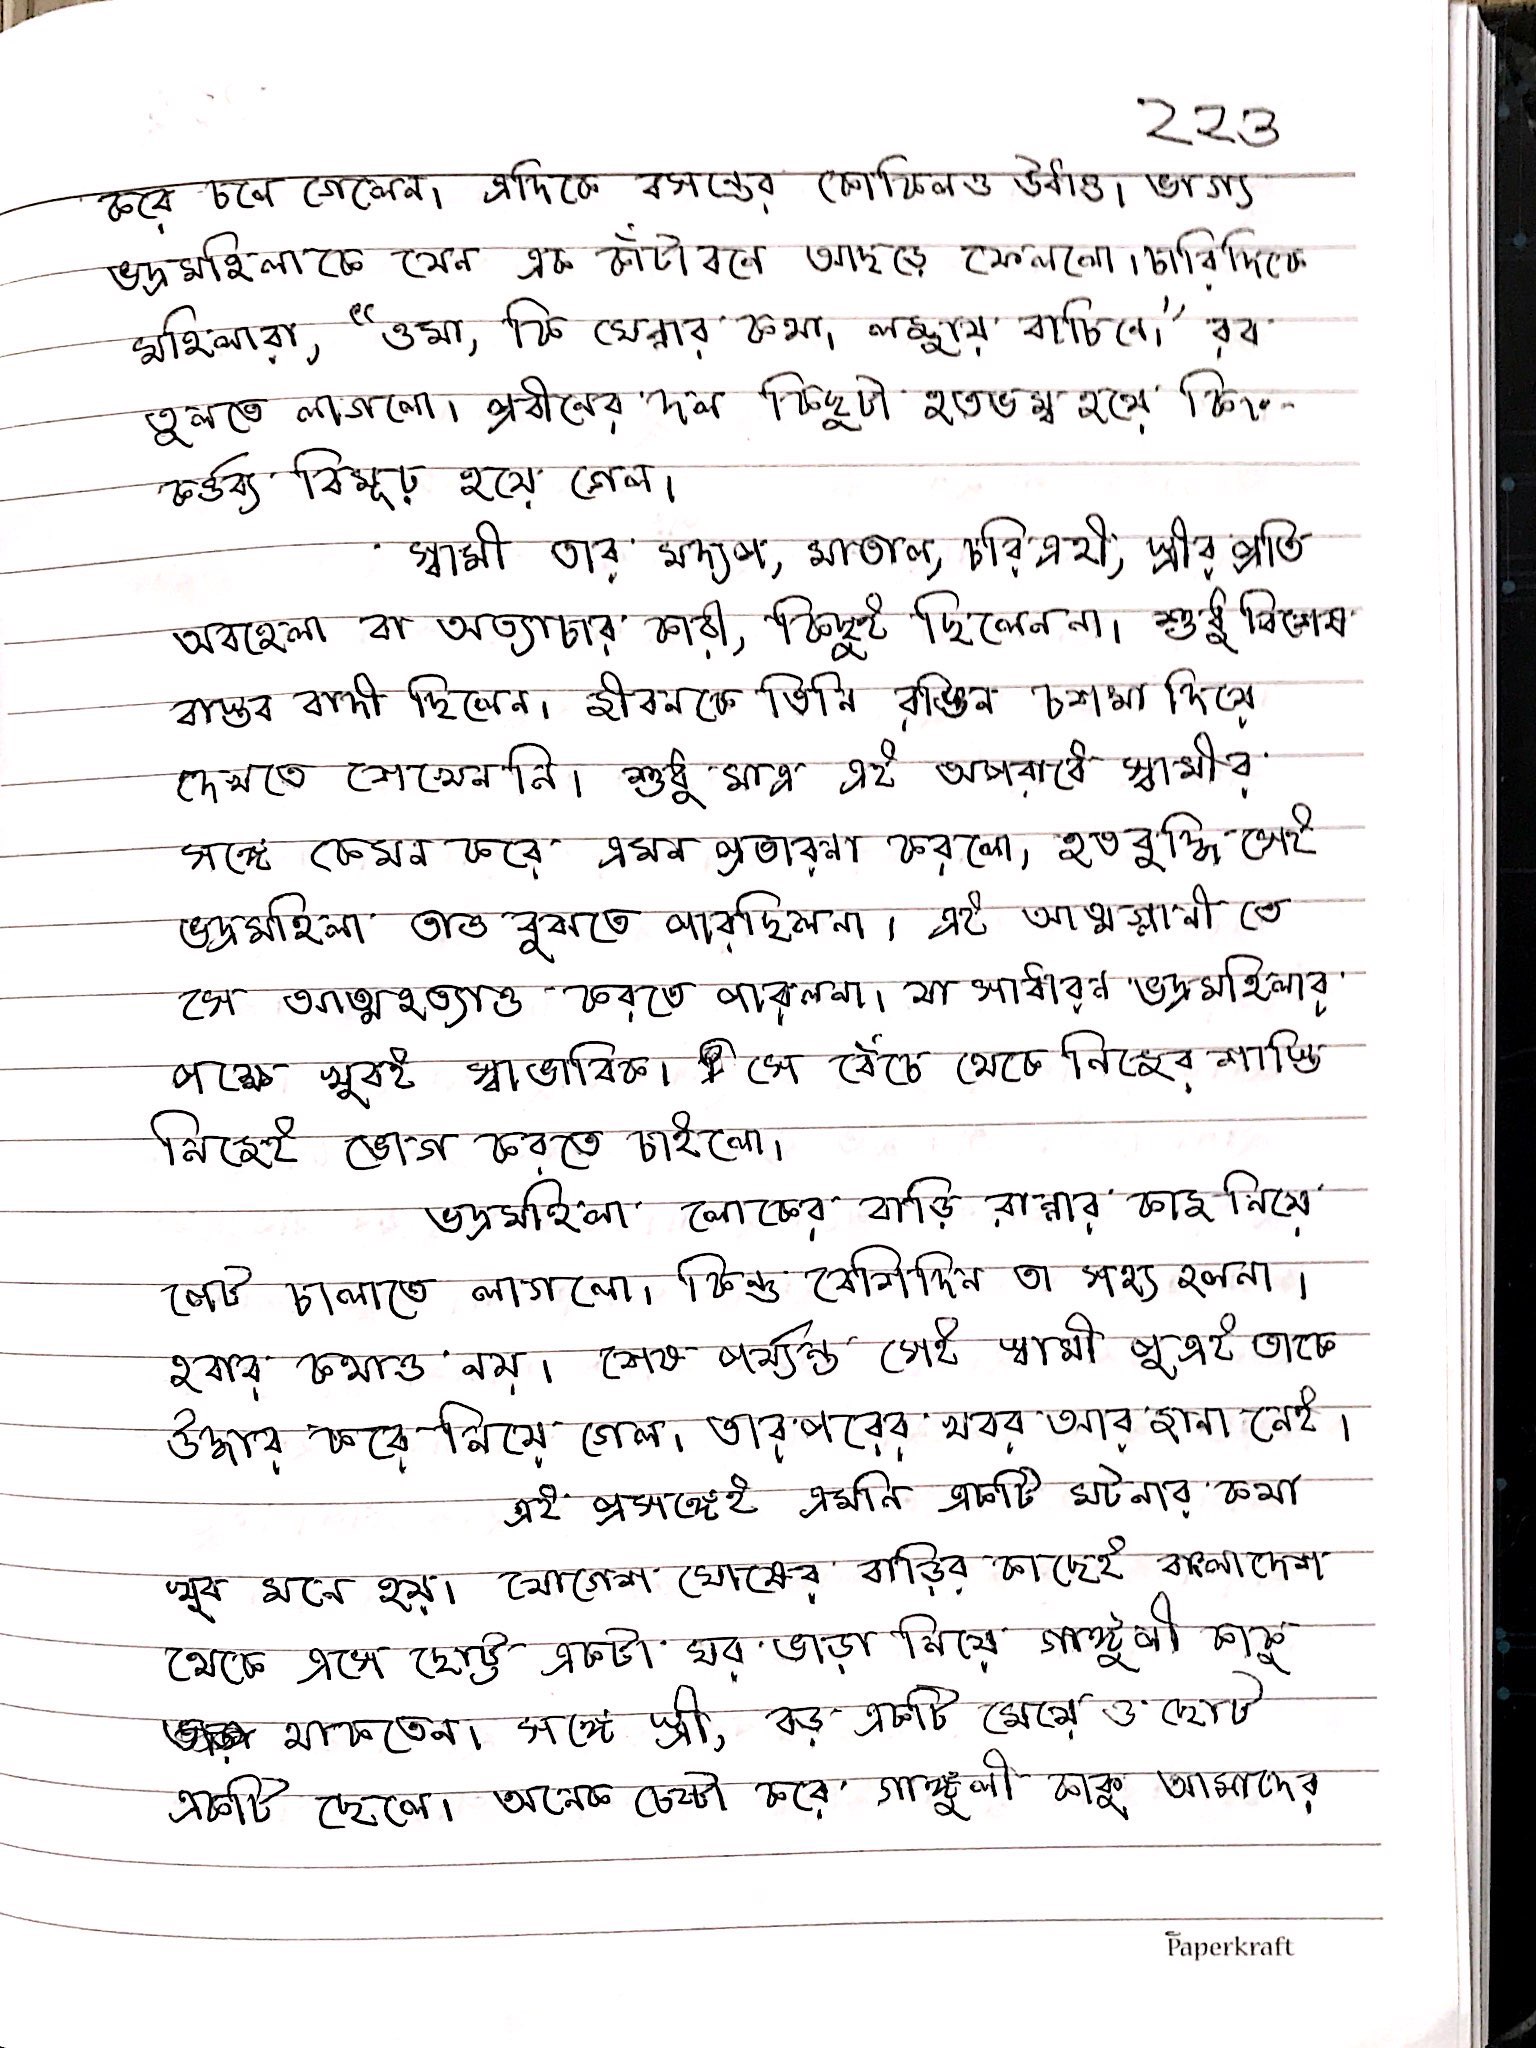 ২২৩
করে চলে গেলেন। এদিকে বসন্তের কোকিলও উধাও। ভাগ্য
ভদ্রমহিলাকে যেন এক কাঁটা বনে আছড়ে ফেললো। চারিদিকে
মহিলারা, "ওমা, কি ঘেন্নার কথা, লজ্জায় বাচিনে," রব
তুলতে লাগলো। প্রবীনের দল কিছুটা হতভম্ব হয়ে কিং-
কর্ত্তব্য বিমূঢ় হয়ে গেল।
স্বামী তার মদ্যপ, মাতাল, চরিত্রহী, স্ত্রীর প্রতি
অবহেলা বা অত্যাচার কারী, কিছুই ছিলেন না। শুধু বিশেষ
বাস্তব বাদী ছিলেন। জীবনকে তিনি রঙিন চশমা দিয়ে
দেখতে শেখেন নি। শুধু মাত্র এই অপরাধে স্বামীর
সঙ্গে কেমন করে এমন প্রতারনা করলো, হতবুদ্ধি সেই
ভদ্রমহিলা তাও বুঝতে পারছিলনা। এই আত্মগ্লানী তে
সে আত্মহত্যাও করতে পারলনা। যা সাধারন ভদ্রমহিলার
পক্ষে খুবই স্বাভাবিক। সে বেঁচে থেকে নিজের শাস্তি
নিজেই ভোগ করতে চাইলো।
ভদ্রমহিলা লোকের বাড়ি রান্নার কাজ নিয়ে
পেট চালাতে লাগলো। কিন্তু বেশিদিন তা সহ্য হলনা।
হবার কথাও নয়। শেষ পর্য্যন্ত সেই স্বামী পুত্রই তাকে
উদ্ধার করে নিয়ে গেল। তারপরের খবর আর জানা নেই।
এই প্রসঙ্গেই এমনি একটি ঘটনার কথা
খুব মনে হয়। যোগেশ ঘোষের বাড়ির কাছেই বাংলাদেশ
থেকে এসে ছোট্ট একটা ঘর ভাড়া নিয়ে গাঙ্গুলী কাকু
থাকতেন। সঙ্গে স্ত্রী, বড় একটি মেয়ে ও ছোট
একটি ছেলে। অনেক চেষ্টা করে গাঙ্গুলী কাকু আমাদের
Paperkraft